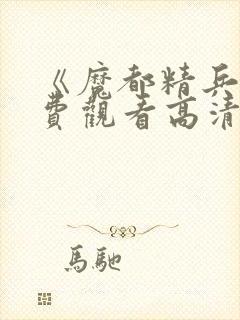 《魔都精兵
費觀看高清
馬馳